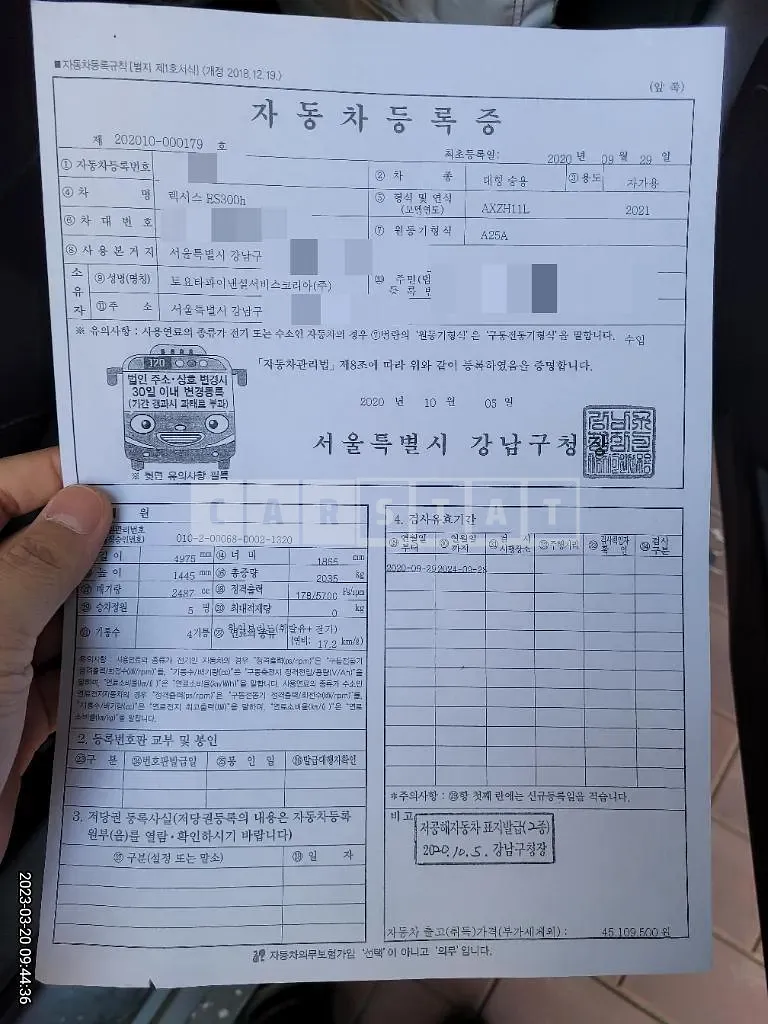 ■자동차등록규칙[별지 제1호서식] 〈개정 2018.12.19.〉
(앞 쪽)
자동차등록증
제 202010-000179 호
최초등록일: 2020 년 09 월 29 일
① 자동차등록번호 ② 차 종 대형 승용 ③ 용도 자가용
④ 차 명 렉서스 ES300h ⑤ 형식 및 연식 (모델연도) AXZH11L 2021
⑥ 차 대 번 호 ⑦ 원동기형식 A25A
⑧ 사 용 본 거 지 서울특별시 강남구
소유자 ⑨ 성명(명칭) 토요타파이낸셜서비스코리아(주) ⑩ 주민(법 등 록 번
⑪ 주 소 서울특별시 강남구
※ 유의사항 : 사용연료의 종류가 전기 또는 수소인 자동차의 경우 ⑦번란의 '원동기형식'은 '구동전동기형식'을 말합니다. 수입
「자동차관리법」 제8조에 따라 위와 같이 등록하였음을 증명합니다.
120
법인 주소·상호 변경시
30일 이내 변경등록
(기간 경과시 과태료 부과)
※ 뒷면 유의사항 필독
2020 년 10 월 05 일
서울특별시 강남구청장
CARSTAT
원
010-2-00068-0002-1320
길 이 4975 mm ⑭ 너 비 1865 mm
높 이 1445 mm 총중량 2035 kg
배기량 2487 cc 정격출력 178/5700 Ps/rpm
승차정원 5 명 최대적재량 0 kg
기통수 4기통 연료의 종류 하이브리드(휘발유+전기)
(연비: 17.2 km/ℓ)
유의사항 : 사용연료의 종류가 전기인 자동차의 경우 "정격출력(ps/rpm)"은 "구동전동기
정격출력/최고회전수(㎾/rpm)"를, "기통수/배기량(cc)"은 "구동축전지 정격전압/용량(V/Ah)"을
말하며, "연료소비율(km/ℓ)"은 "연료소비율(km/kWh)"을 말합니다. 사용연료의 종류가 수소인
연료전지자동차의 경우 "정격출력(ps/rpm)"은 "구동전동기 정격출력/최고회전수(㎾/rpm)"를,
"기통수/배기량(cc)"은 "연료전지 최고출력(㎾)"을 말하며, "연료소비율(km/ℓ)"은 "연료
소비율(km/kg)"을 말합니다.
2. 등록번호판 교부 및 봉인
구 분 번호판발급일 봉 인 일 발급대행자확인
3. 저당권 등록사실(저당권등록의 내용은 자동차등록
원부(을)를 열람·확인하시기 바랍니다)
구분(설정 또는 말소) 일 자
4. 검사유효기간
연월일 부터 연월일 까지 검 사 시행장소 주행거리 검사책임자 확 인 검사 구분
2020-09-29 2024-09-28
※주의사항 : 항 첫째 란에는 신규등록일을 적습니다.
비고
저공해자동차 표지발급(2종)
2020.10.5. 강남구청장
자동차 출고(취득)가격(부가세제외): 45,109,500 원
자동차의무보험가입 '선택'이 아니고 '의무'입니다.
2023-03-20 09:44:36